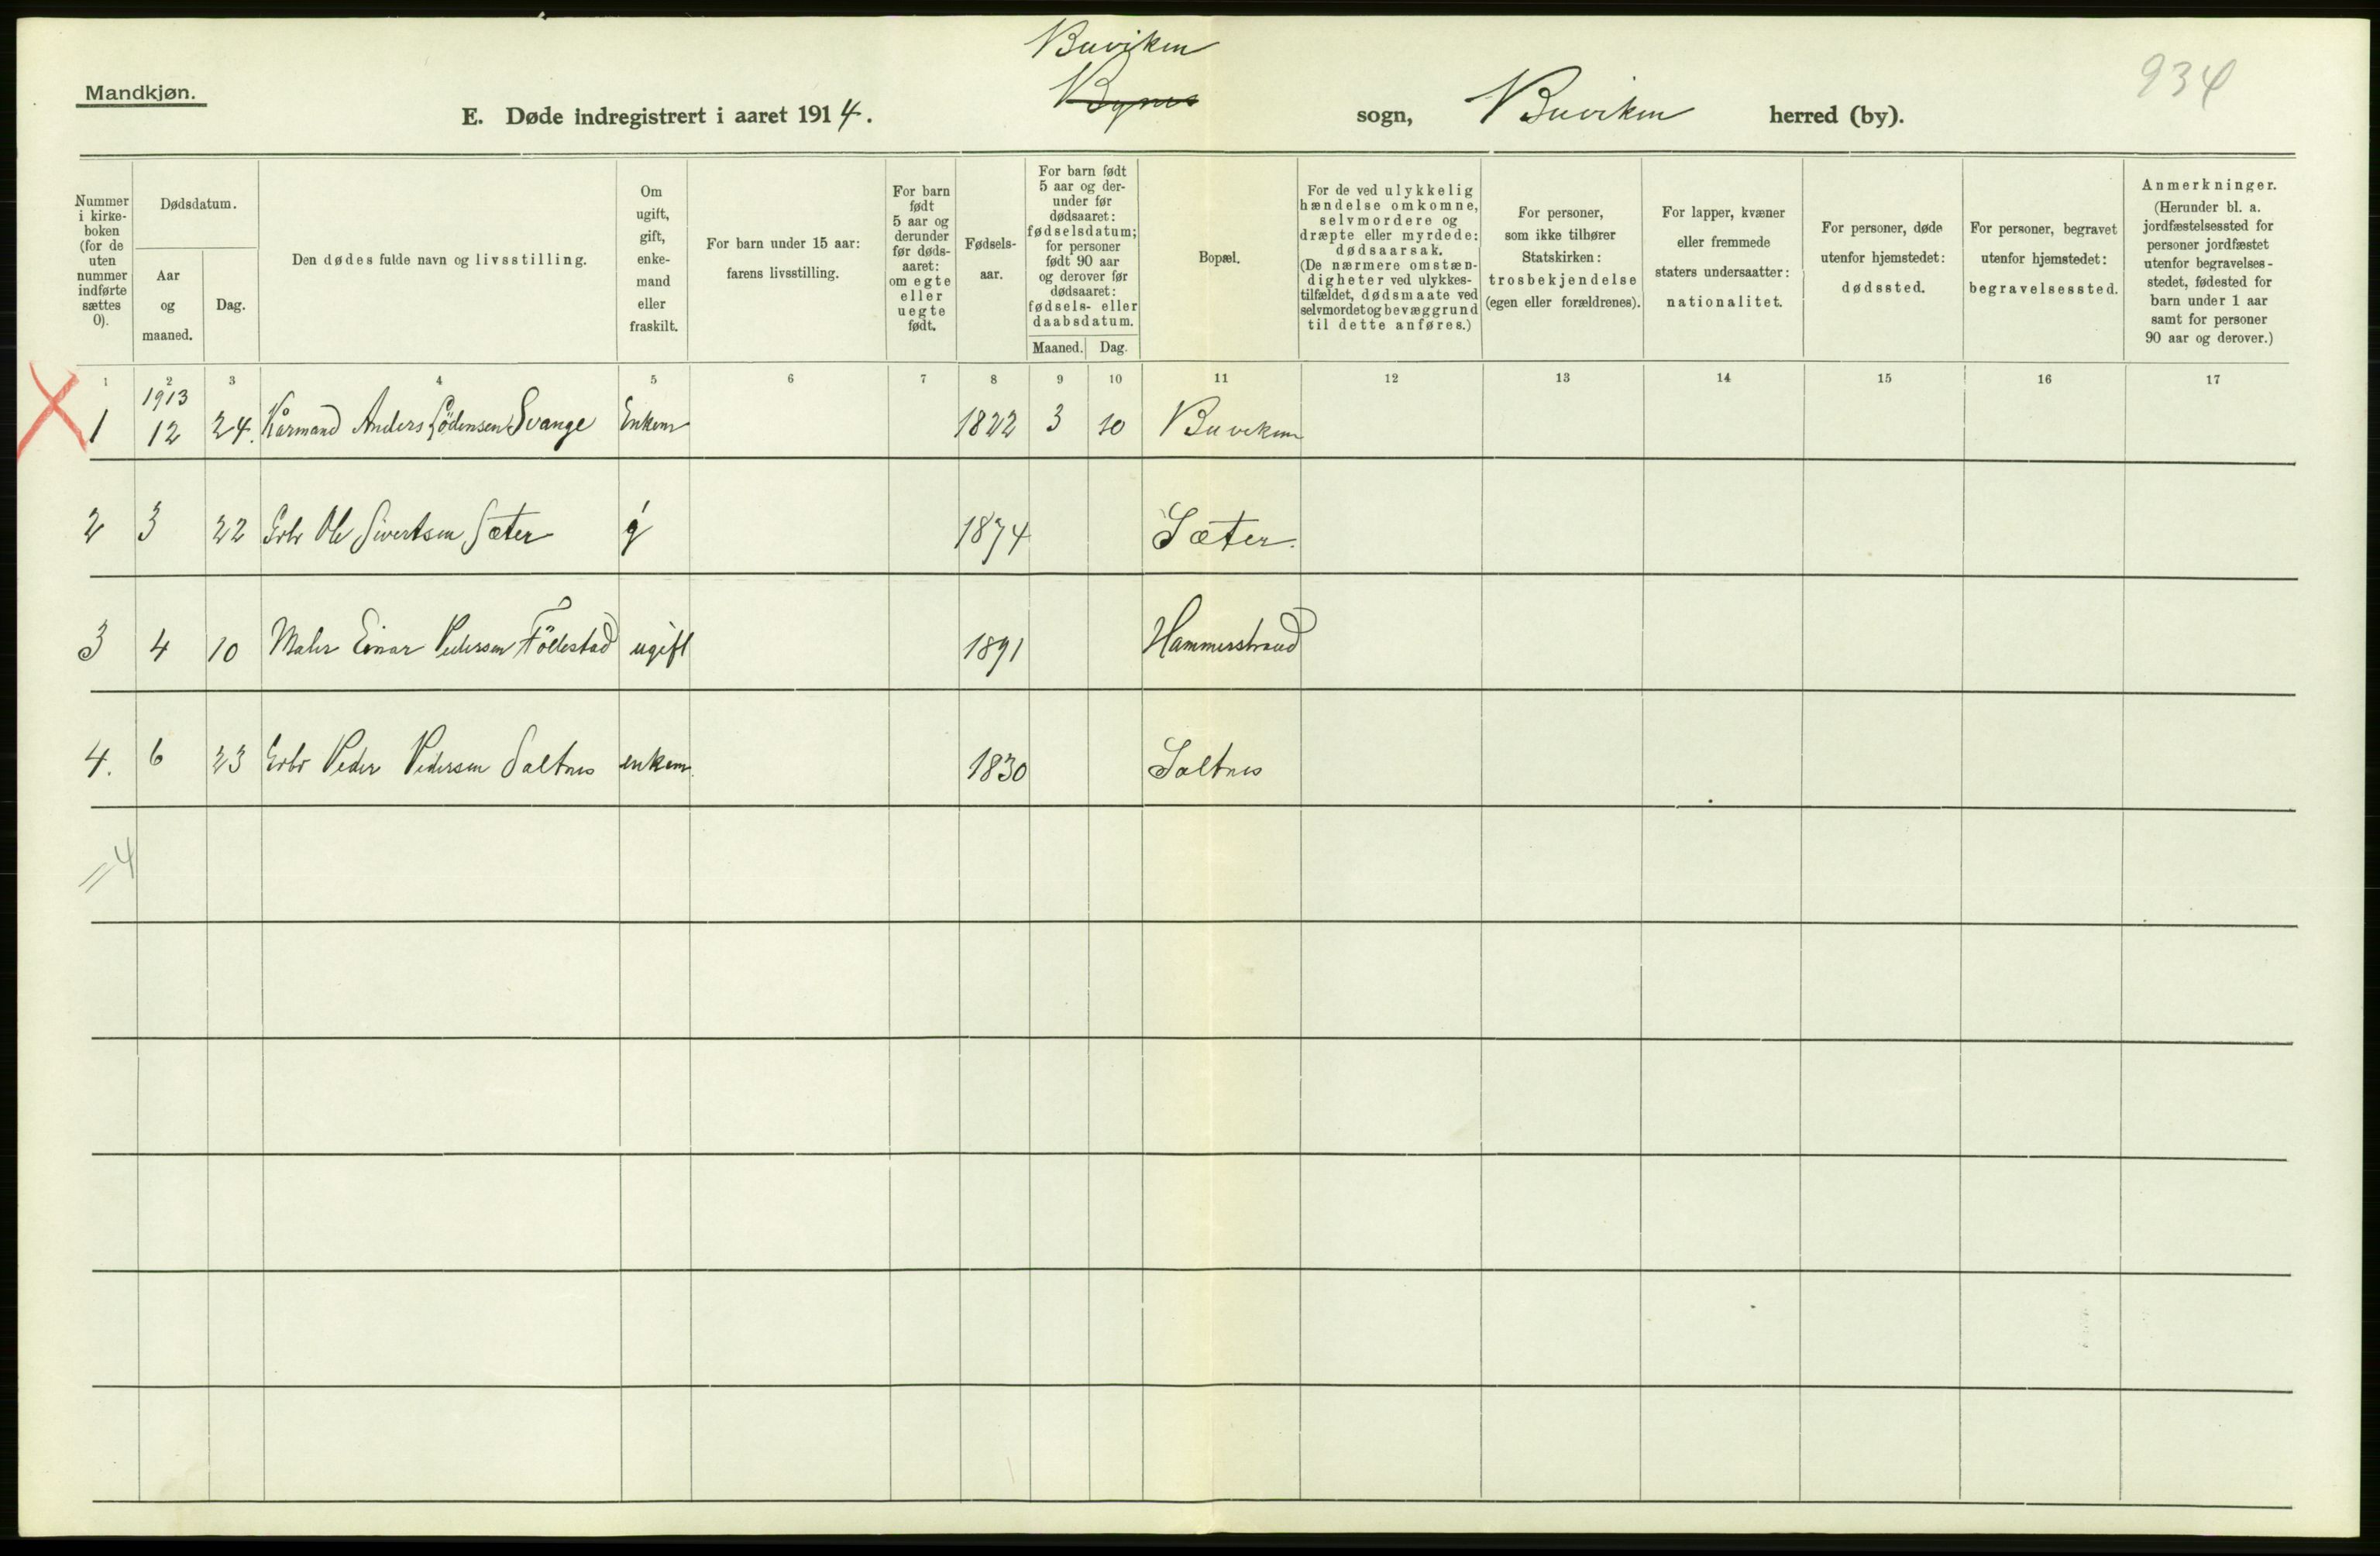 Buviken
Mandkjøn.
E. Døde indregistrert i aaret 1914.
Bynes
sogn,
Buviken
herred (by).
934
Nummer
i kirke-
boken
(for de
uten
nummer
indførte
sættes
0).
Dødsdatum.
Aar
og
maaned.
Dag.
Den dødes fulde navn og livsstilling.
Om
ugift,
gift,
enke-
mand
eller
fraskilt.
For barn under 15 aar:
farens livsstilling.
For barn
født
5 aar og
derunder
før døds-
aaret:
om egte
eller
uegte
født.
Fødsels-
aar.
For barn født
5 aar og der-
under før
dødsaaret:
fødselsdatum;
for personer
født 90 aar
og derover før
dødsaaret:
fødsels- eller
daabsdatum.
Maaned. Dag.
Bopæl.
For de ved ulykkelig
hændelse omkomne,
selvmordere og
dræpte eller myrdede:
dødsaarsak.
(De nærmere omstæn-
digheter ved ulykkes-
tilfældet, dødsmaate ved
selvmordet og bevæggrund
til dette anføres.)
For personer,
som ikke tilhører
Statskirken:
trosbekjendelse
(egen eller forældrenes).
For lapper, kvæner
eller fremmede
staters undersaatter:
nationalitet.
For personer, døde
utenfor hjemstedet:
dødssted.
For personer, begravet
utenfor hjemstedet:
begravelsessted.
Anmerkninger.
(Herunder bl. a.
jordfæstelsessted for
personer jordfæstet
utenfor begravelses-
stedet, fødested for
barn under 1 aar
samt for personer
90 aar og derover.)
1 2 3 4 5 6 7 8 9 10 11 12 13 14 15 16 17
1913
1 12 24. Kårmand Anders Svange Enkem 1822 3 10 Buviken
2 3 22 Ole Sivertsen Sæter g 1874 Sæter.
3 4 10 Maler Einar Pedersen Föllestad ugift 1891 Hammerstrand
4. 6 23 Peder Pedersen Saltnes enkem. 1830 Saltnes
=4